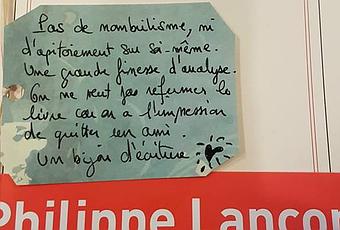 Pas de nombrilisme, ni
d'apitoiement sur soi-même.
Une grande finesse d'analyse.
On ne veut pas refermer le
livre car on a l'impression
de quitter un ami.
Un bijou d'écriture
Philippe Lançon